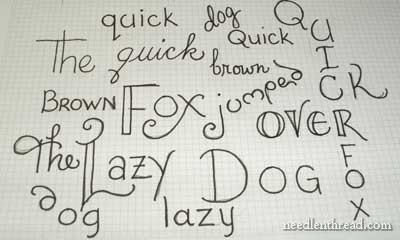 quick dog QUICK
The quick Quick
brown
BROWN Fox jumped
OVER
The Lazy DOG FOX
dog lazy
needlenthread.com